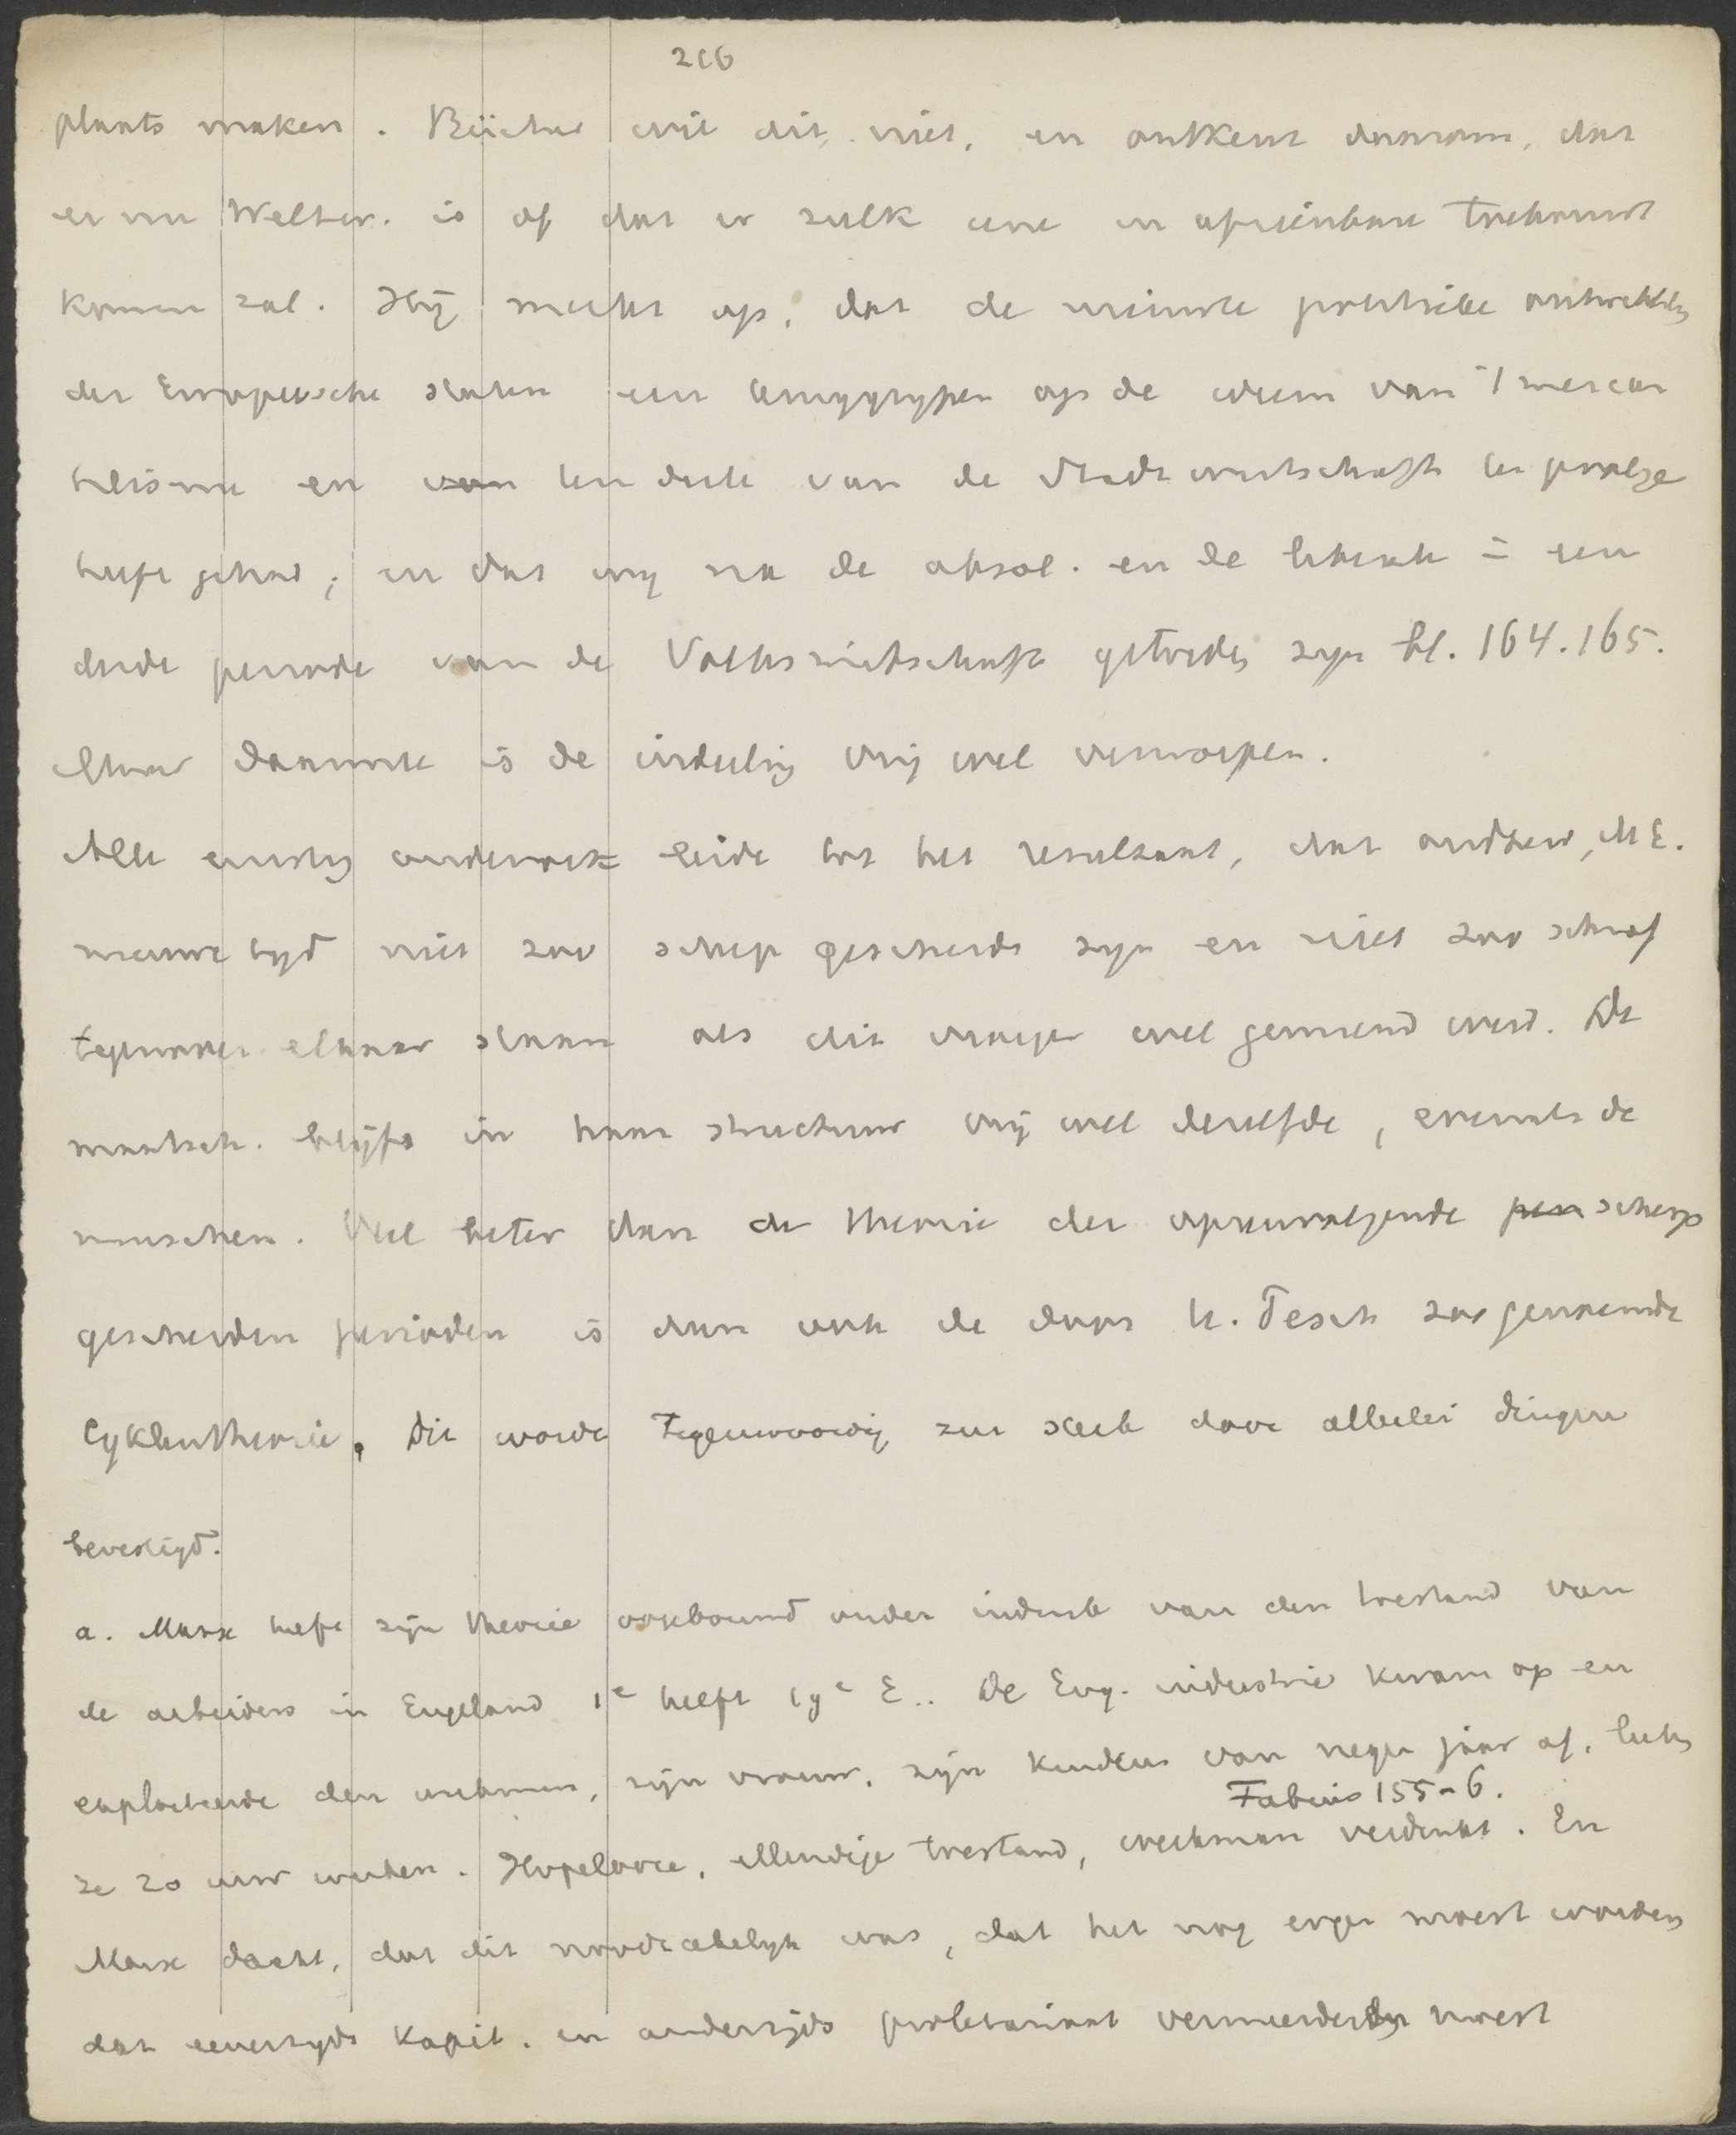 216
plaats maken. Bücher wil dit niet, en ontkent daarom, dat
er nu Weltw. is of dat er zulk eene in afzienbare toekomst
komen zal. Hij merkt op, dat de nieuwste politieke ontwikkeling
der Europeesche staten een teruggrijpen op de ideeen van 't mercan
tilisme en van ten deele van de Stadtwirtschaft ten gevolge
heeft gehad; en dat wij na de absol. en de liberale = een
derde periode van de Volkswirtschaft getreden zijn bl. 164.165.
Maar daarmee is de indeeling vrij wel verworpen.
Alle ernstig onderzoek leidt tot het resultaat, dat oudheid, M E.
nieuwe tijd niet zoo scherp gescheiden zijn en niet zoo schraf
tegenover elkaar staan als dit vroeger wel gemeend werd. De
maatsch. blijft in haar structuur vrij wel dezelfde, evenals de
menschen. Veel beter dan de theorie der opeenvolgende pen scherp
gescheiden perioden is dan ook de door H. Pesch zoogenoemde
Cyklentheorie. Dit wordt tegenwoordig zeer sterk door allerlei dingen
bevestigd.
a. Marx heeft zijn theorie opgebouwd onder indruk van den toestand van
de arbeiders in Engeland 1e helft 19e E.. De Eng. industrie kwam op en
exploiteerde den werkman, zijn vrouw, zijn kinderen van negen jaar af, liet
Fabius 155-6.
ze 20 uur werken. Hopelooze, ellendige toestand, werkman verdrukt. En
Marx dacht, dat dit noodzakelijk was, dat het nog erger moest worden
dat eenerzijds kapit. en anderzijds proletariaat vermeerderen moest